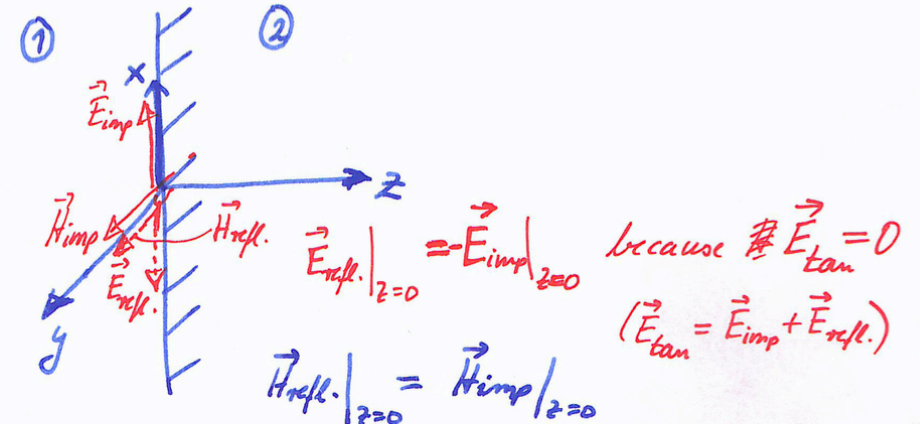 ① ②
x
E⃗imp
z
H⃗imp H⃗refl.
E⃗refl.
y
E⃗refl.|z=0 = -E⃗imp|z=0 because E⃗tan = 0
(E⃗tan = E⃗imp + E⃗refl.)
H⃗refl.|z=0 = H⃗imp|z=0